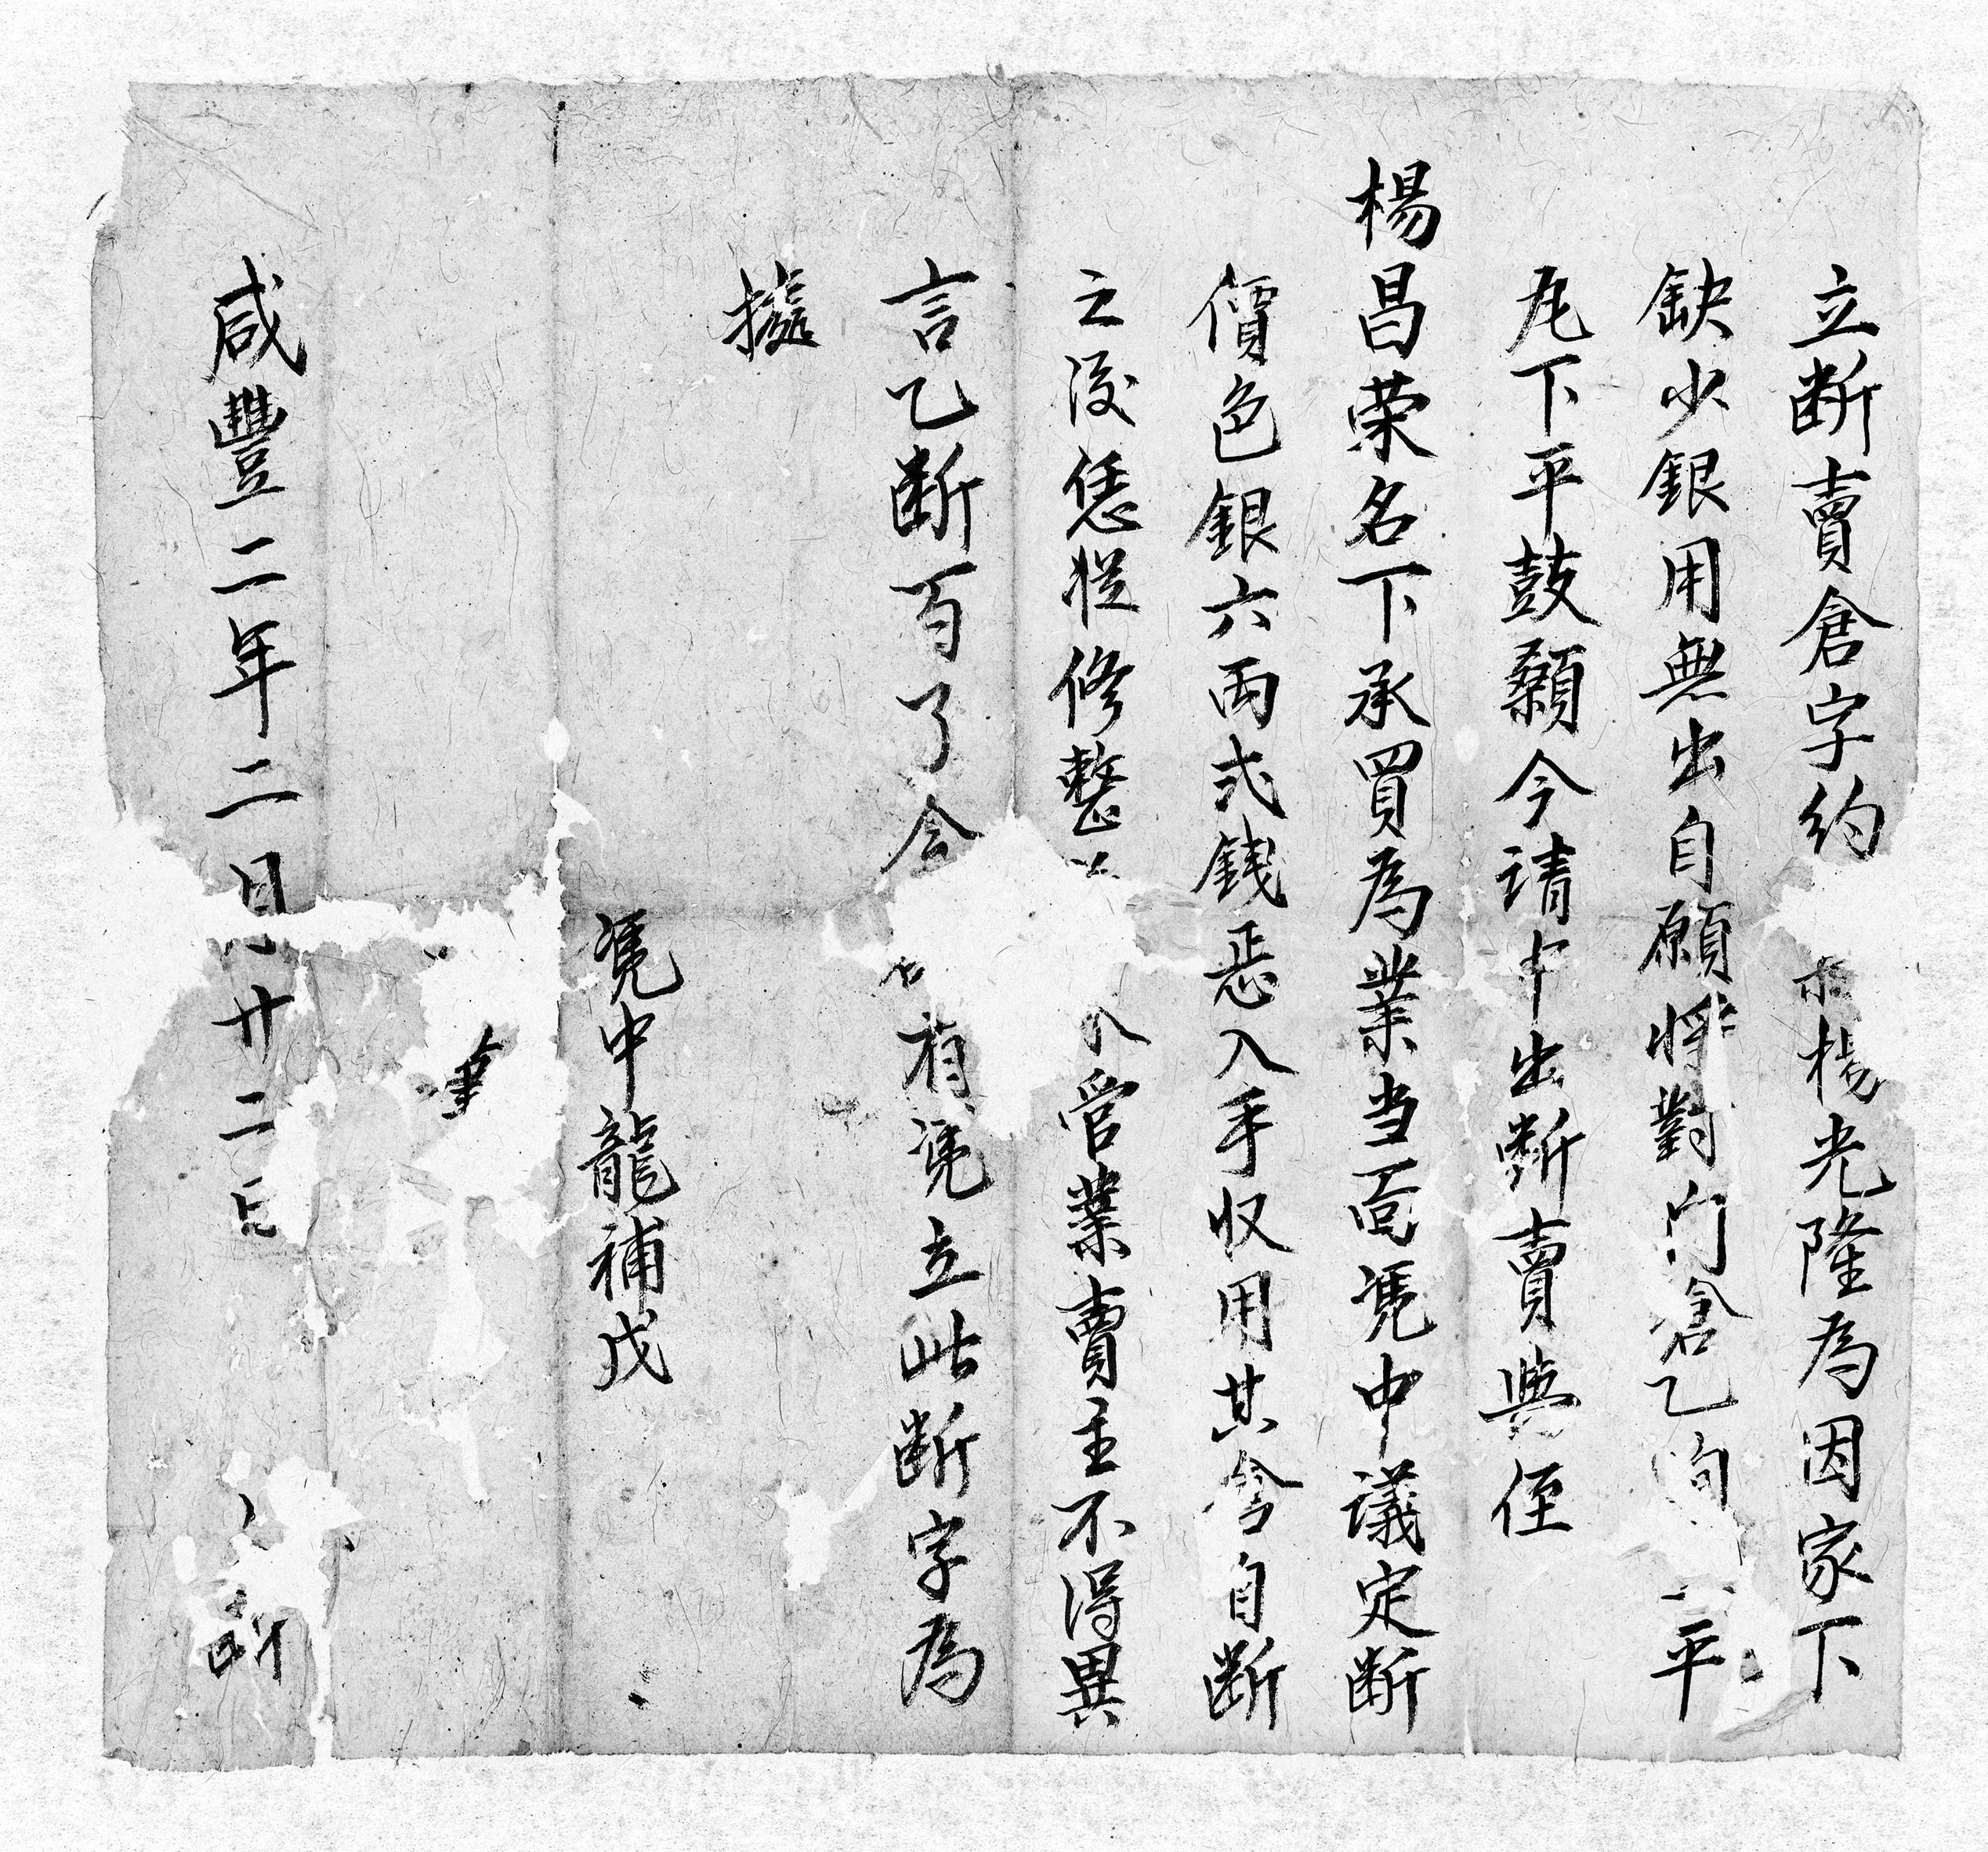 立断賣倉字約楊光隆為因家下
缺少銀用無出自願将對门倉乙间平
尾下平鼓願今请中出断賣與侄
楊昌荣名下承買為業当靣凴中議定断
價色銀六両弍銭恁入手収用其倉自断
之後恁從修整管業賣主不得異
言乙断百了今有凴立此断字為
擄
凴中龍補戊
筆
咸豐二年二月廿二日